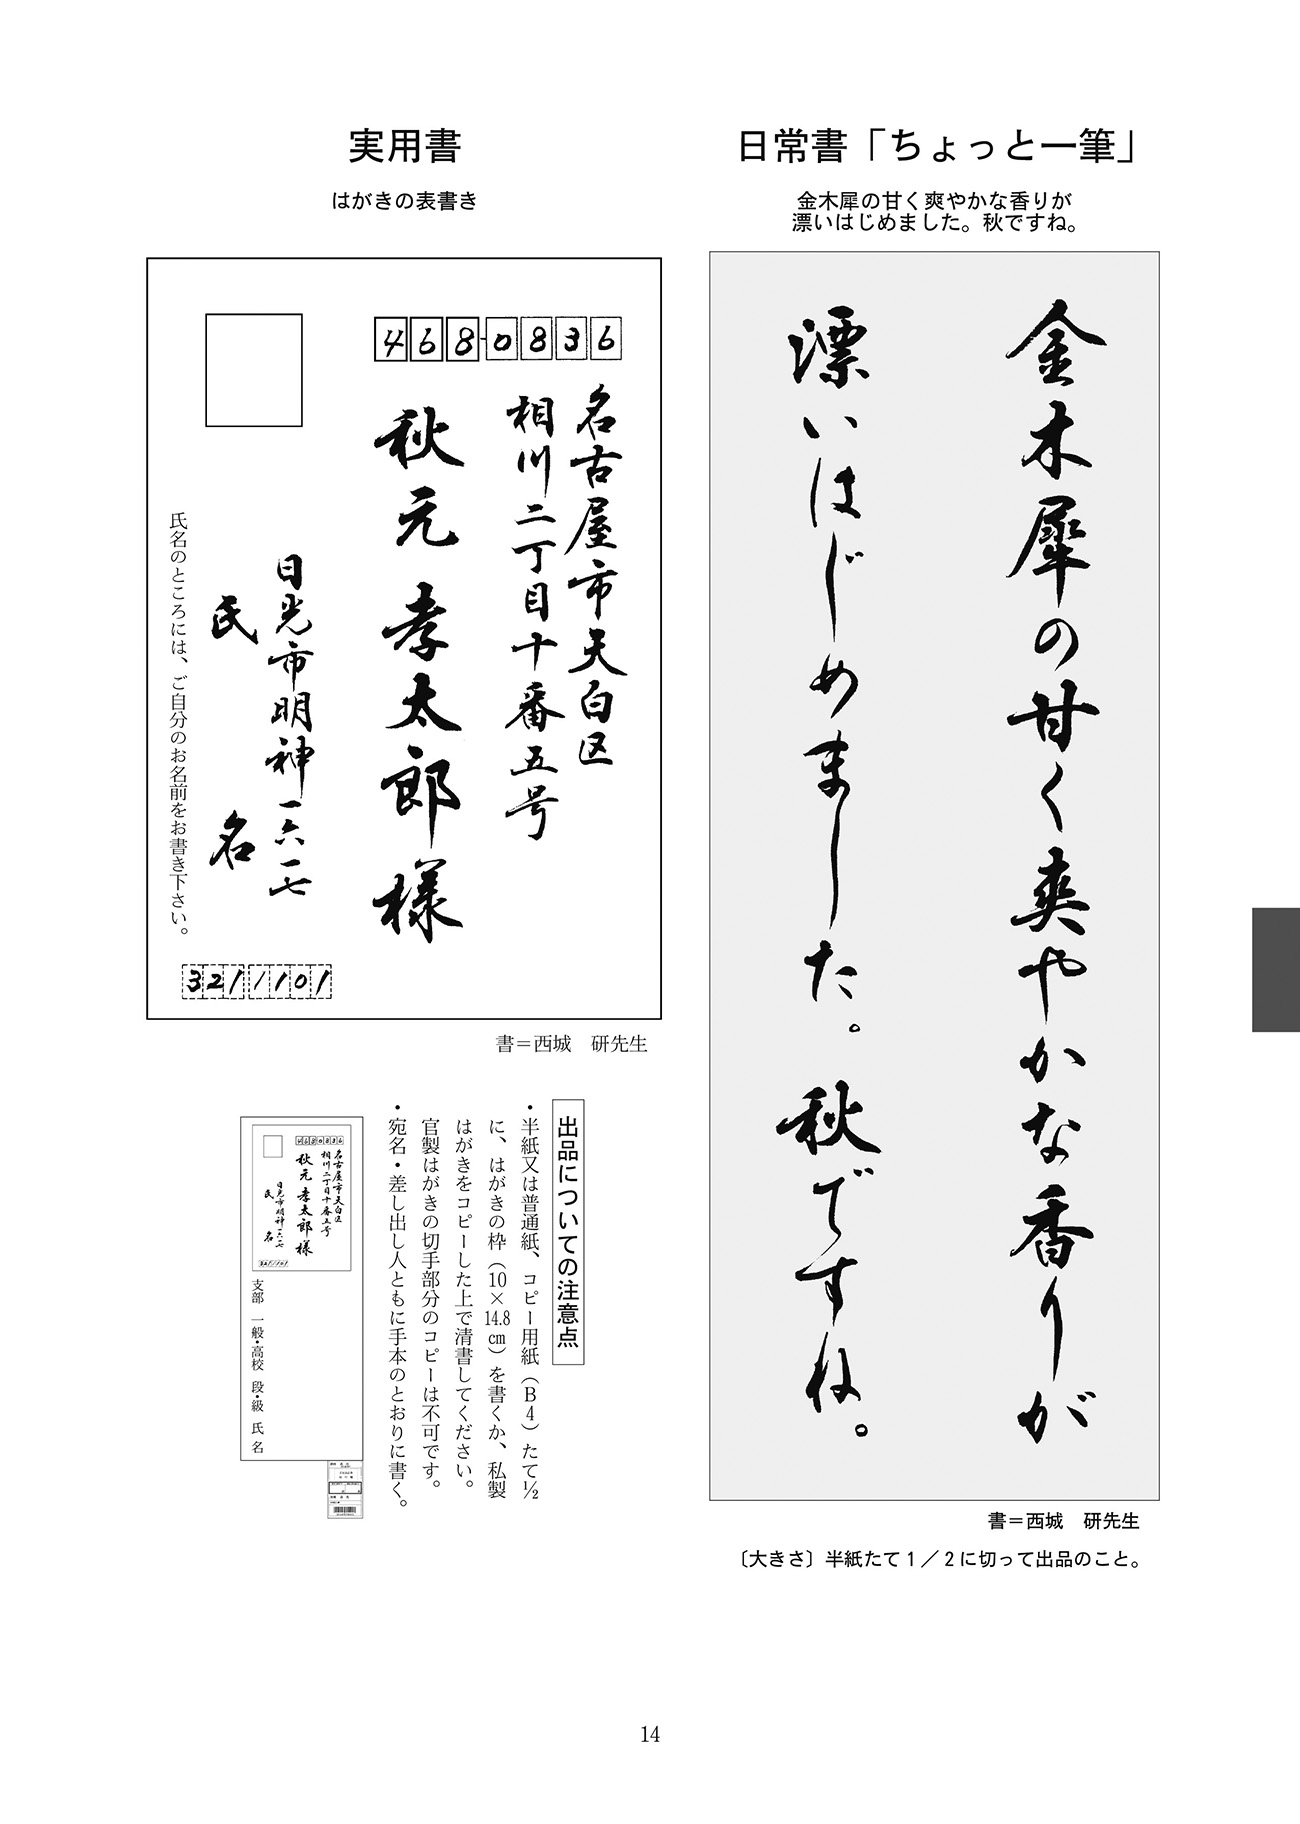 日常書「ちょっと一筆」
金木犀の甘く爽やかな香りが
漂いはじめました。秋ですね。
金木犀の甘く爽やかな香りが
漂いはじめました。秋ですね。
書＝西城　研先生
〔大きさ〕半紙たて１／２に切って出品のこと。
実用書
はがきの表書き
468-0836
名古屋市天白区
相川二丁目十番五号
秋元孝太郎様
日光市明神一六一七
氏　名
321-1101
氏名のところには、ご自分のお名前をお書き下さい。
書＝西城　研先生
出品についての注意点
・半紙又は普通紙、コピー用紙（B4）たて½
に、はがきの枠（10×14.8㎝）を書くか、私製
はがきをコピーした上で清書してください。
官製はがきの切手部分のコピーは不可です。
・宛名・差し出し人ともに手本のとおりに書く。
468-0836
名古屋市天白区
相川二丁目十番五号
秋元孝太郎様
日光市明神一六一七
氏　名
321-1101
支部　一般・高校　段・級　氏名
14